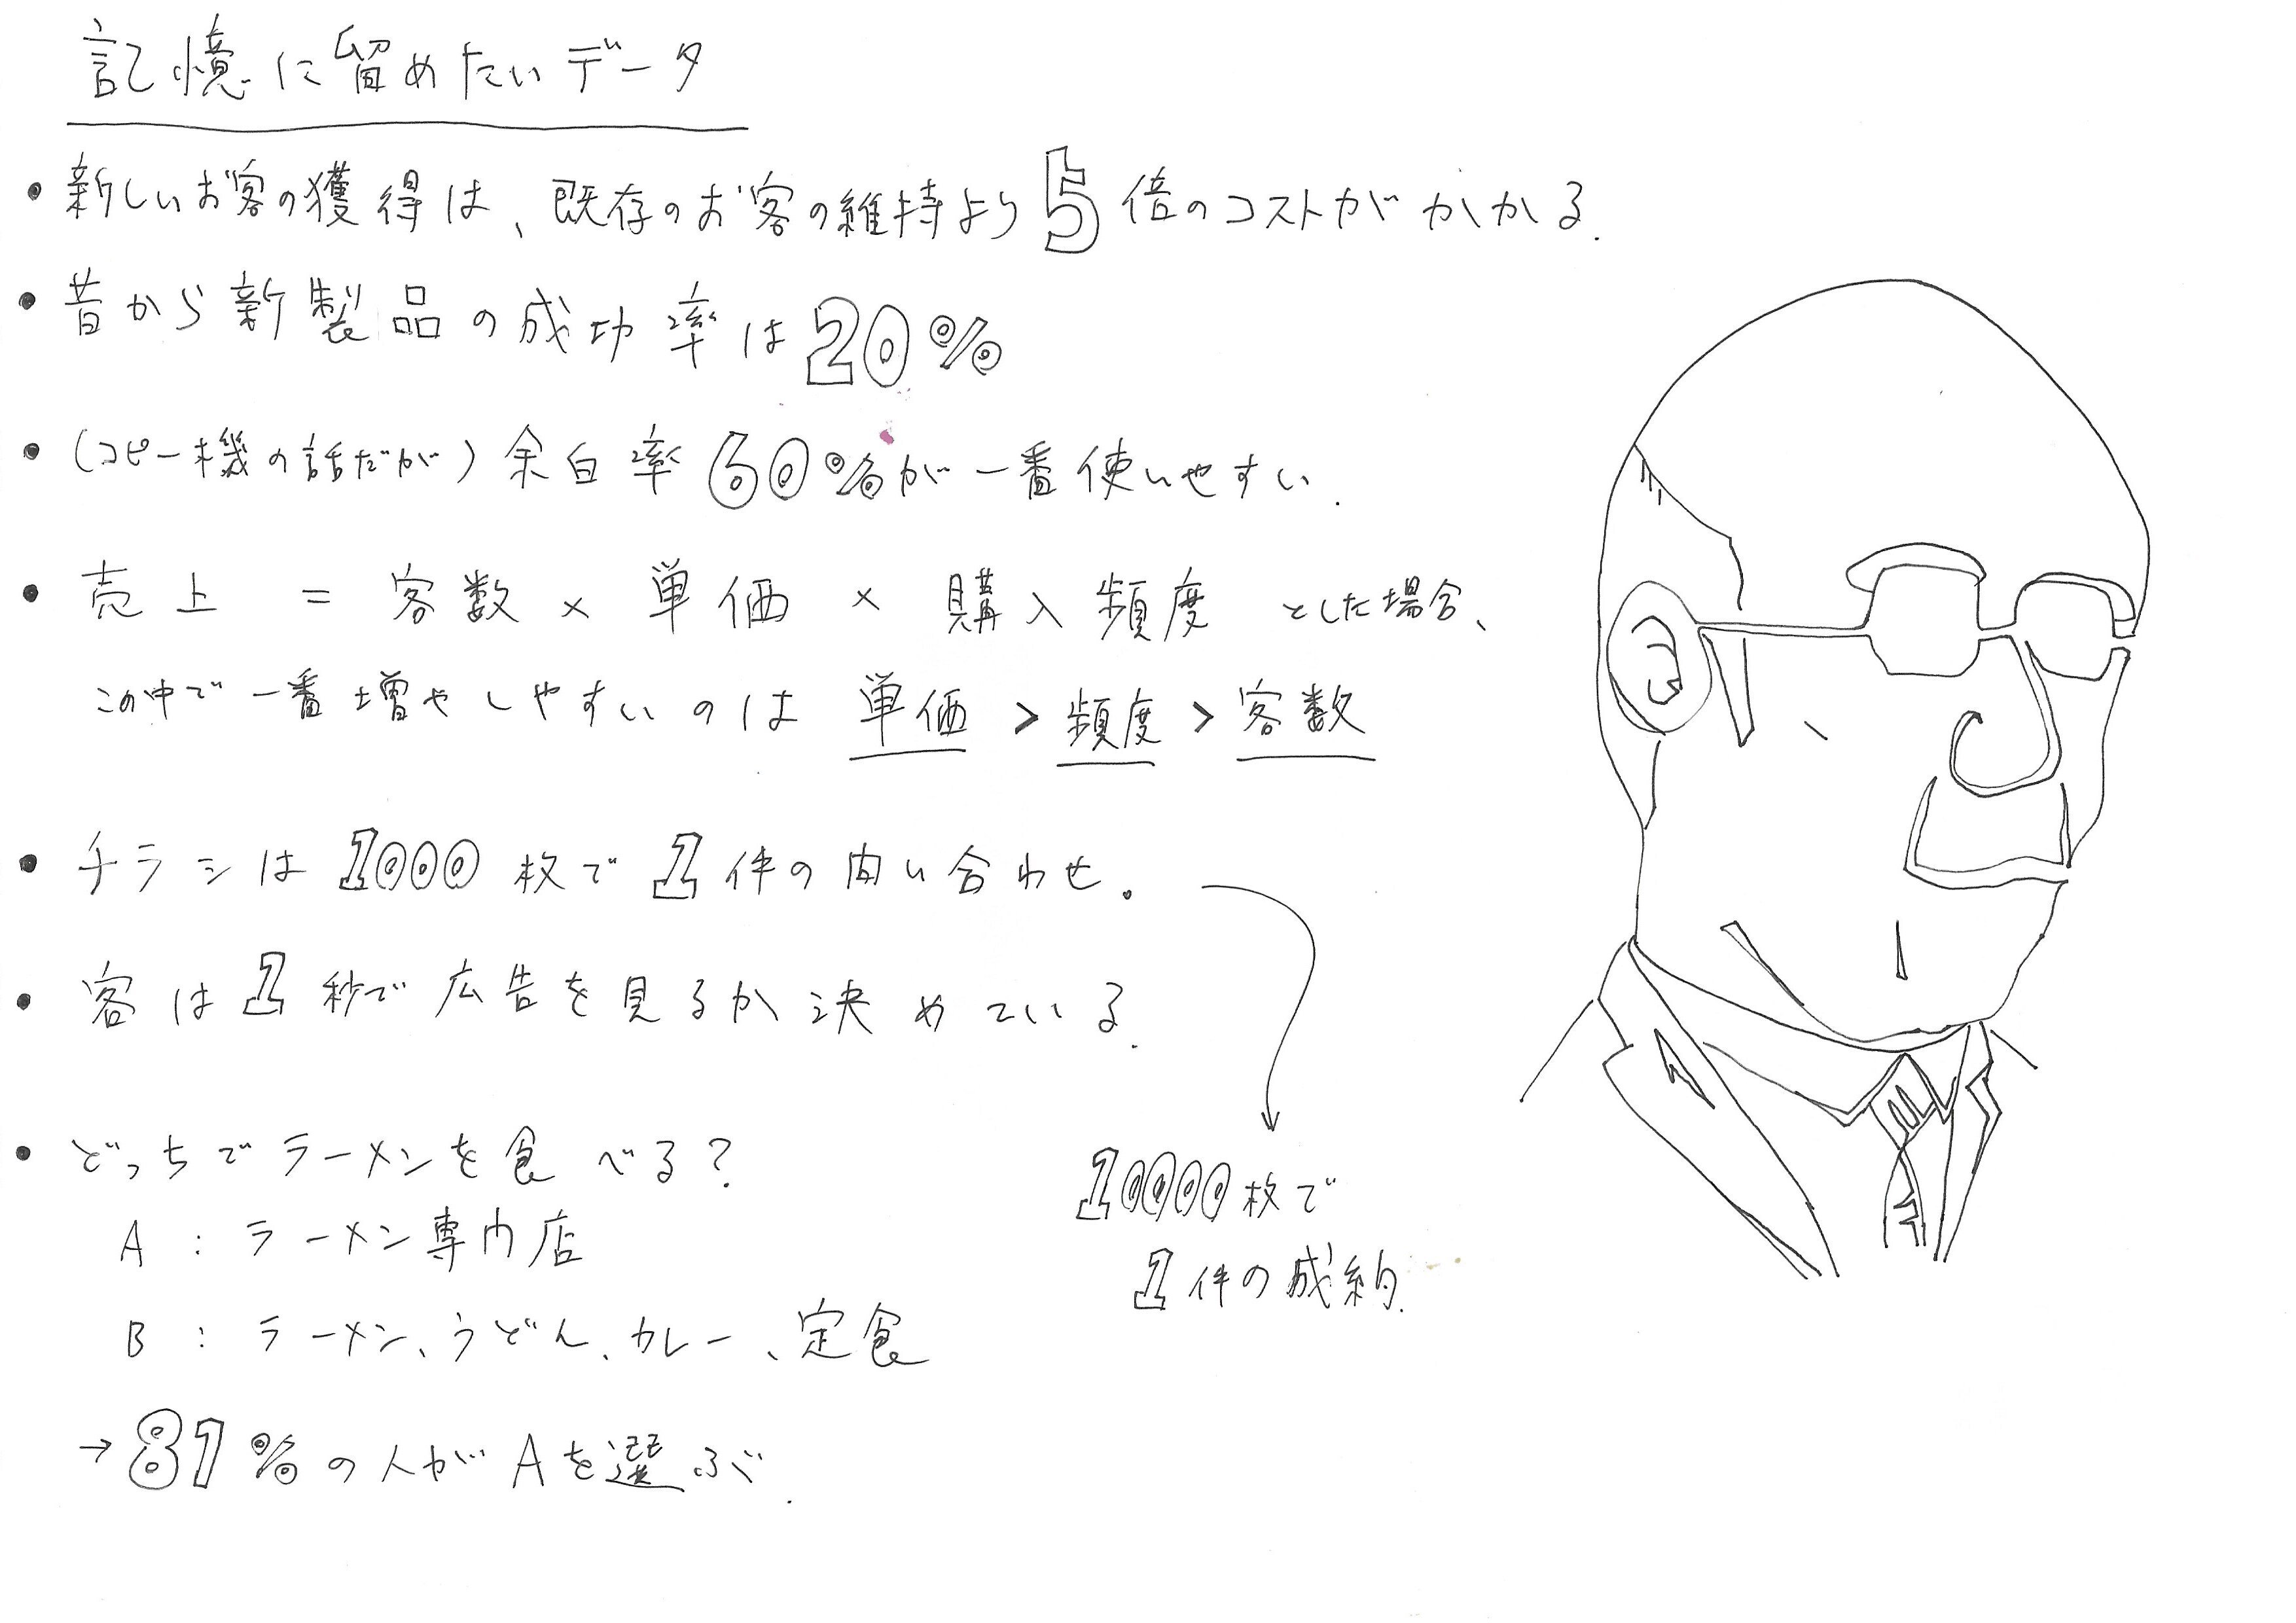 記憶に留めたいデータ
・新しいお客の獲得は、既存のお客の維持より5倍のコストがかかる.
・昔から新製品の成功率は20%
・(コピー機の話だが)余白率60%が一番使いやすい.
・売上 = 客数 × 単価 × 購入頻度 とした場合、
この中で一番増やしやすいのは 単価 > 頻度 > 客数
・チラシは1000枚で1件の問い合わせ。
・客は1秒で広告を見るか決めている.
・どっちでラーメンを食べる?
A : ラーメン専門店
B : ラーメン、うどん、カレー、定食
→81%の人がAを選ぶ.
10000枚で
1件の成約.